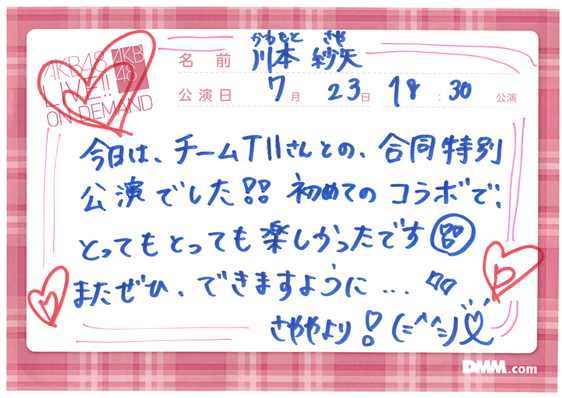 AKB48
LIVE!!
ON DEMAND
AKB
48
かわもと さや
名前 川本 紗矢
公演日 7月 23日 18:30 公演
今日は、チームTIIさんとの、合同特別
公演でした!! 初めてのコラボで、
とってもとっても楽しかったです
またぜひ、できますように...
さややより! (=^^=)
DMM.com